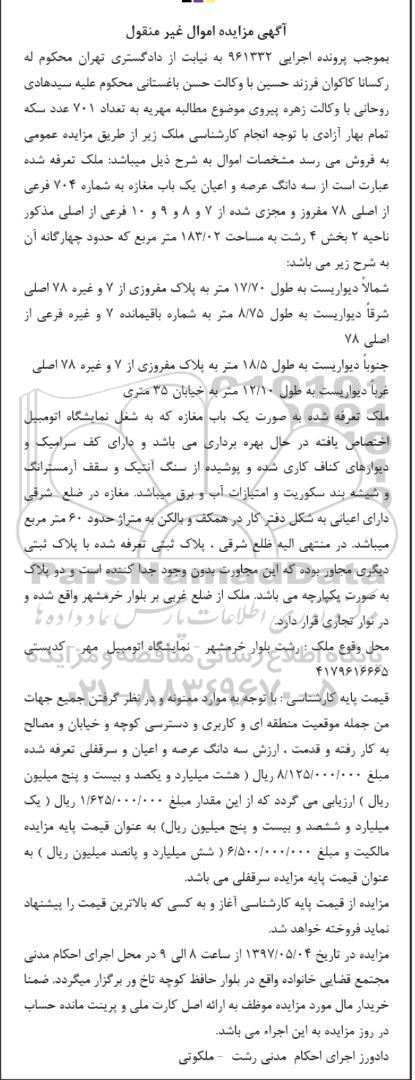 آگهی مزایده اموال غیر منقول
بموجب پرونده اجرایی ۹۶۱۳۳۲ به نیابت از دادگستری تهران محکوم له
رکسانا کاکوان فرزند حسین با وکالت حسن باغستانی محکوم علیه سیدهادی
روحانی با وکالت زهره پیروی موضوع مطالبه مهریه به تعداد ۷۰۱ عدد سکه
تمام بهار آزادی با توجه انجام کارشناسی ملک زیر از طریق مزایده عمومی
به فروش می رسد مشخصات اموال به شرح ذیل میباشد: ملک تعرفه شده
عبارت است از سه دانگ عرصه و اعیان یک باب مغازه به شماره ۷۰۴ فرعی
از اصلی ۷۸ مفروز و مجزی شده از ۷ و ۸ و ۹ و ۱۰ فرعی از اصلی مذکور
ناحیه ۲ بخش ۴ رشت به مساحت ۱۸۳/۰۲ متر مربع که حدود چهارگانه آن
به شرح زیر می باشد:
شمالاً دیواریست به طول ۱۷/۷۰ متر به پلاک مفروزی از ۷ و غیره ۷۸ اصلی
شرقاً دیواریست به طول ۸/۷۵ متر به شماره باقیمانده ۷ و غیره فرعی از
اصلی ۷۸
جنوباً دیواریست به طول ۱۸/۵ متر به پلاک مفروزی از ۷ و غیره ۷۸ اصلی
غرباً دیواریست به طول ۱۲/۱۰ متر به خیابان ۳۵ متری
ملک تعرفه شده به صورت یک باب مغازه که به شغل نمایشگاه اتومبیل
اختصاص یافته در حال بهره برداری می باشد و دارای کف سرامیک و
دیوارهای کناف کاری شده و پوشیده از سنگ آنتیک و سقف آرمسترانگ
و شیشه بند سکوریت و امتیازات آب و برق میباشد. مغازه در ضلع شرقی
دارای اعیانی به شکل دفتر کار در همکف و بالکن به متراژ حدود ۶۰ متر مربع
میباشد. در منتهی الیه ظلع شرقی ، پلاک ثبتی تعرفه شده با پلاک ثبتی
دیگری مجاور بوده که این مجاورت بدون وجود جدا کننده است و دو پلاک
به صورت یکپارچه می باشد. ملک از ضلع غربی بر بلوار خرمشهر واقع شده و
در نوار تجاری قرار دارد.
محل وقوع ملک : رشت بلوار خرمشهر - نمایشگاه اتومبیل مهر - کدپستی
۴۱۷۹۶۱۶۶۶۵
قیمت پایه کارشناسی : با توجه به موارد معنونه و در نظر گرفتن جمیع جهات
من جمله موقعیت منطقه ای و کاربری و دسترسی کوچه و خیابان و مصالح
به کار رفته و قدمت ، ارزش سه دانگ عرصه و اعیان و سرقفلی تعرفه شده
مبلغ ۸/۱۲۵/۰۰۰/۰۰۰ ریال ( هشت میلیارد و یکصد و بیست و پنج میلیون
ریال ) ارزیابی می گردد که از این مقدار مبلغ ۱/۶۲۵/۰۰۰/۰۰۰ ریال ( یک
میلیارد و ششصد و بیست و پنج میلیون ریال) به عنوان قیمت پایه مزایده
مالکیت و مبلغ ۶/۵۰۰/۰۰۰/۰۰۰ ( شش میلیارد و پانصد میلیون ریال ) به
عنوان قیمت پایه مزایده سرقفلی می باشد.
مزایده از قیمت پایه کارشناسی آغاز و به کسی که بالاترین قیمت را پیشنهاد
نماید فروخته خواهد شد.
مزایده در تاریخ ۱۳۹۷/۰۵/۰۴ از ساعت ۸ الی ۹ در محل اجرای احکام مدنی
مجتمع قضایی خانواده واقع در بلوار حافظ کوچه تاخ ور برگزار میگردد. ضمنا
خریدار مال مورد مزایده موظف به ارائه اصل کارت ملی و پرینت مانده حساب
در روز مزایده به این اجراء می باشد.
دادورز اجرای احکام مدنی رشت - ملکوتی